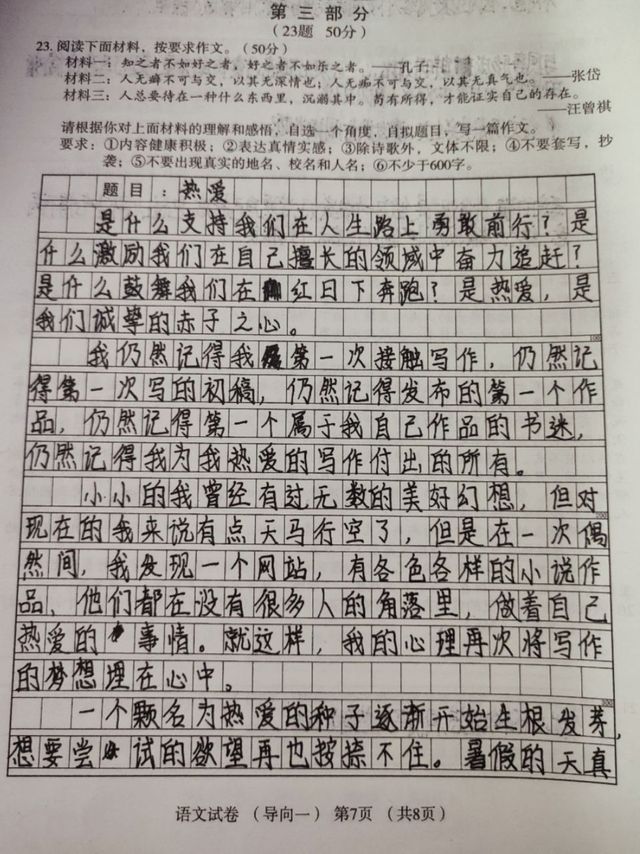 第三部分
（23题 50分）
23. 阅读下面材料，按要求作文。（50分）
材料一：知之者不如好之者，好之者不如乐之者。——孔子
材料二：人无癖不可与交，以其无深情也；人无疵不可与交，以其无真气也。——张岱
材料三：人总要待在一种什么东西里，沉溺其中。苟有所得，才能证实自己的存在。
——汪曾祺
请根据你对上面材料的理解和感悟，自选一个角度，自拟题目，写一篇作文。
要求：①内容健康积极；②表达真情实感；③除诗歌外，文体不限；④不要套写，抄
袭；⑤不要出现真实的地名、校名和人名；⑥不少于600字。
题目：热爱
是什么支持我们在人生路上勇敢前行？是
什么激励我们在自己擅长的领域中奋力追赶？
是什么鼓舞我们在红日下奔跑？是热爱，是
我们诚挚的赤子之心。
100
我仍然记得我第一次接触写作，仍然记
得第一次写的初稿，仍然记得发布的第一个作
品，仍然记得第一个属于我自己作品的书迷，
仍然记得我为我热爱的写作付出的所有。
小小的我曾经有过无数的美好幻想，但对
200
现在的我来说有点天马行空了，但是在一次偶
然间，我发现一个网站，有各色各样的小说作
品，他们都在没有很多人的角落里，做着自己
热爱的事情。就这样，我的心理再次将写作
的梦想埋在心中。
300
一个颗名为热爱的种子逐渐开始生根发芽，
想要尝试的欲望再也按捺不住。暑假的天真
语文试卷 （导向一） 第7页 （共8页）